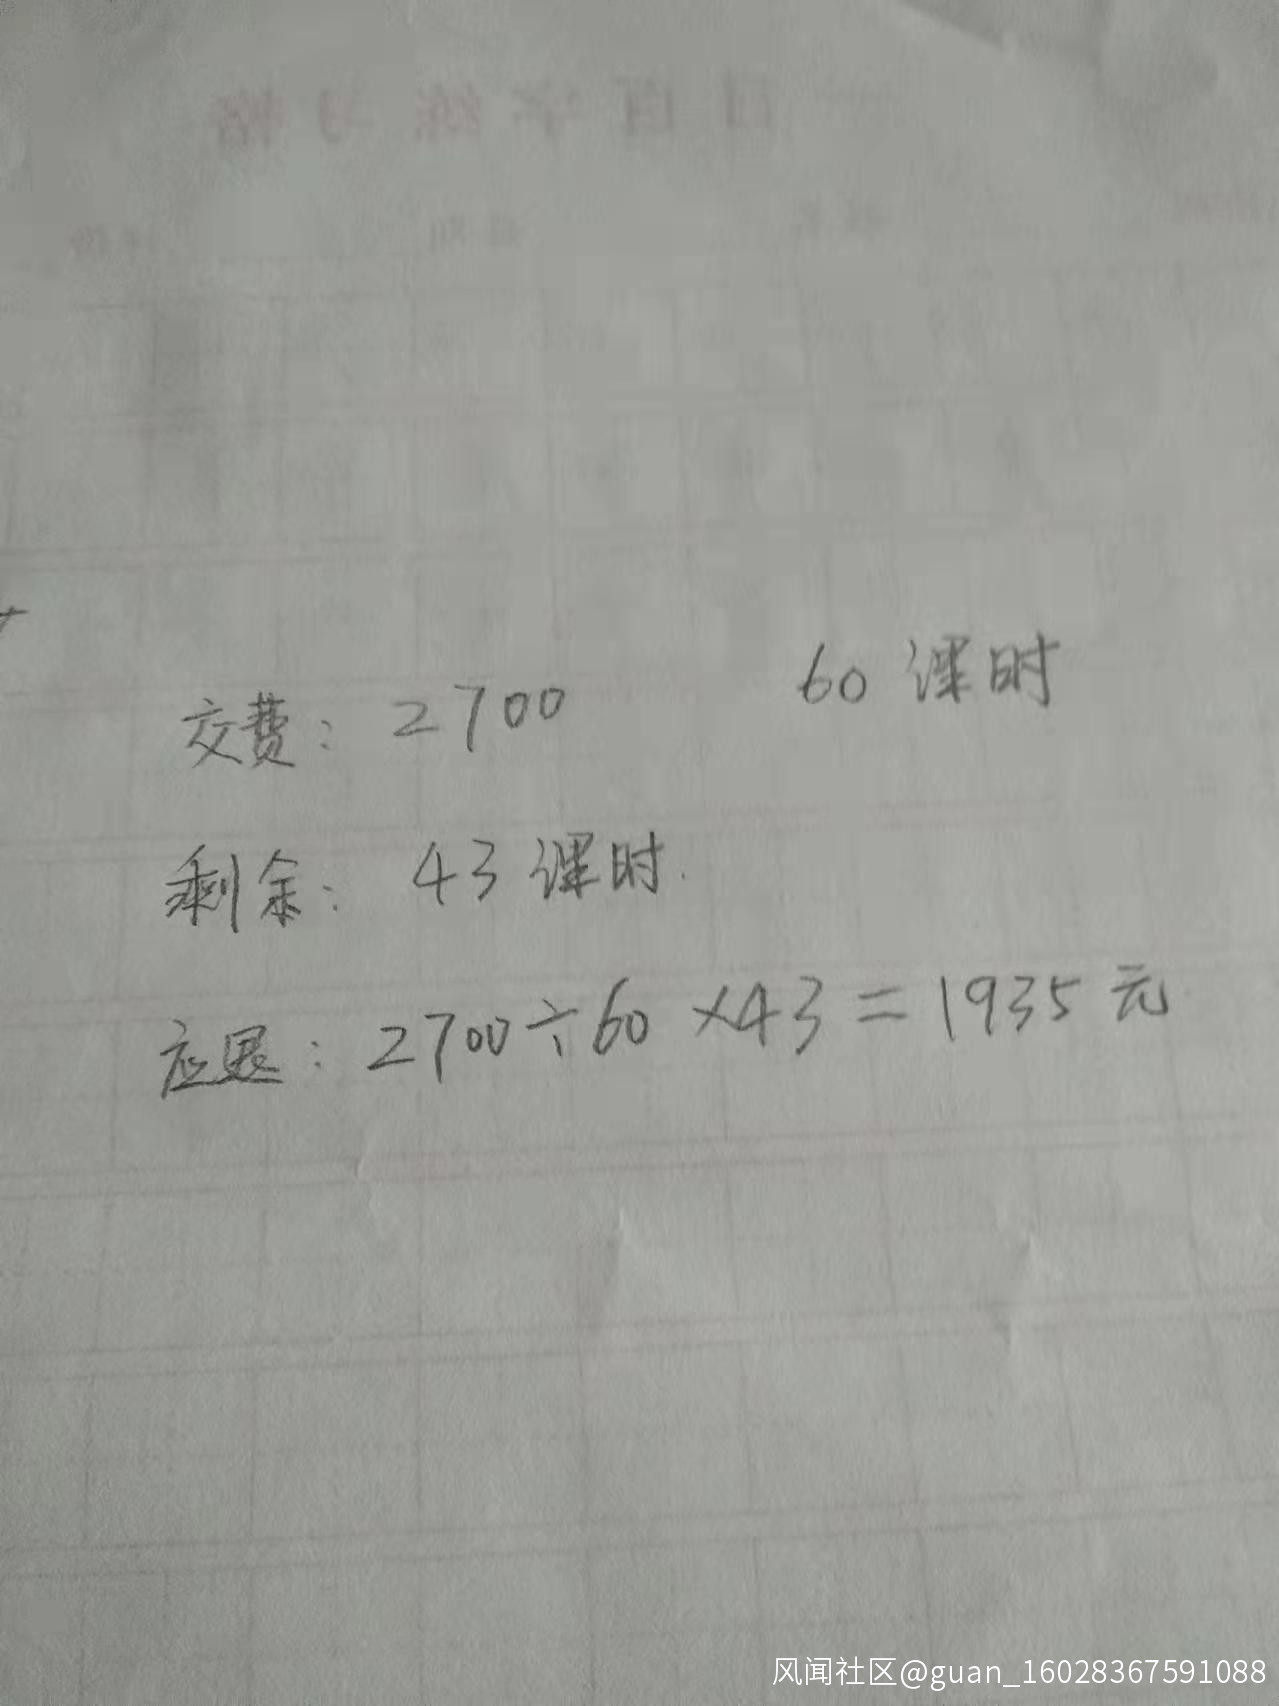 交费：2700 60课时
剩余：43课时.
应退：2700÷60×43=1935元
风闻社区@guan_16028367591088